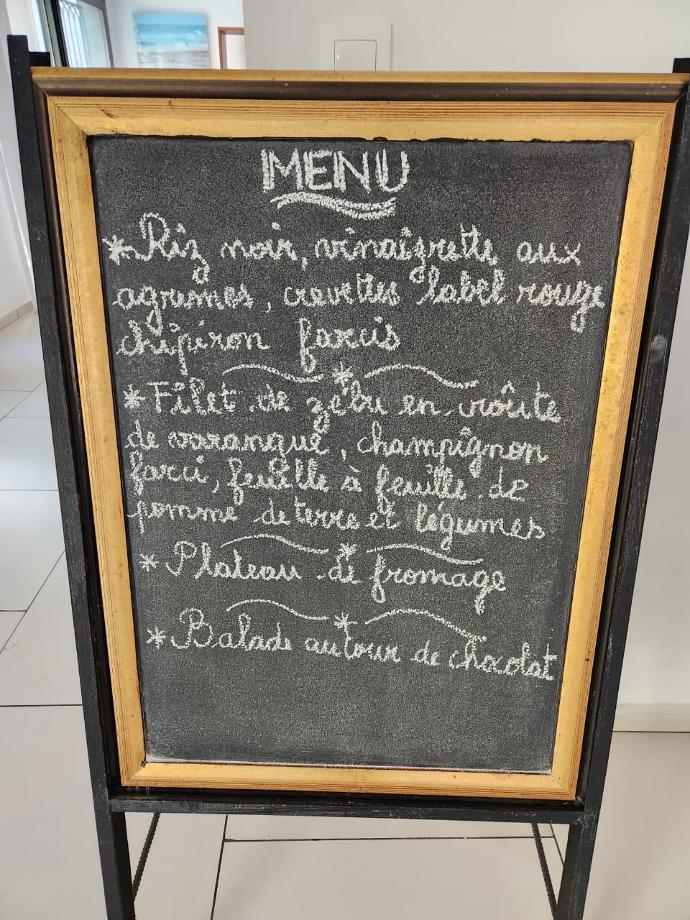 MENU
*Riz noir, vinaigrette aux
agrumes, crevettes label rouge
chipiron farcis
*Filet de zébu en croûte
de varangue, champignon
farci, feuille à feuille de
pomme de terre et légumes
*Plateau de fromage
*Balade autour de chocolat